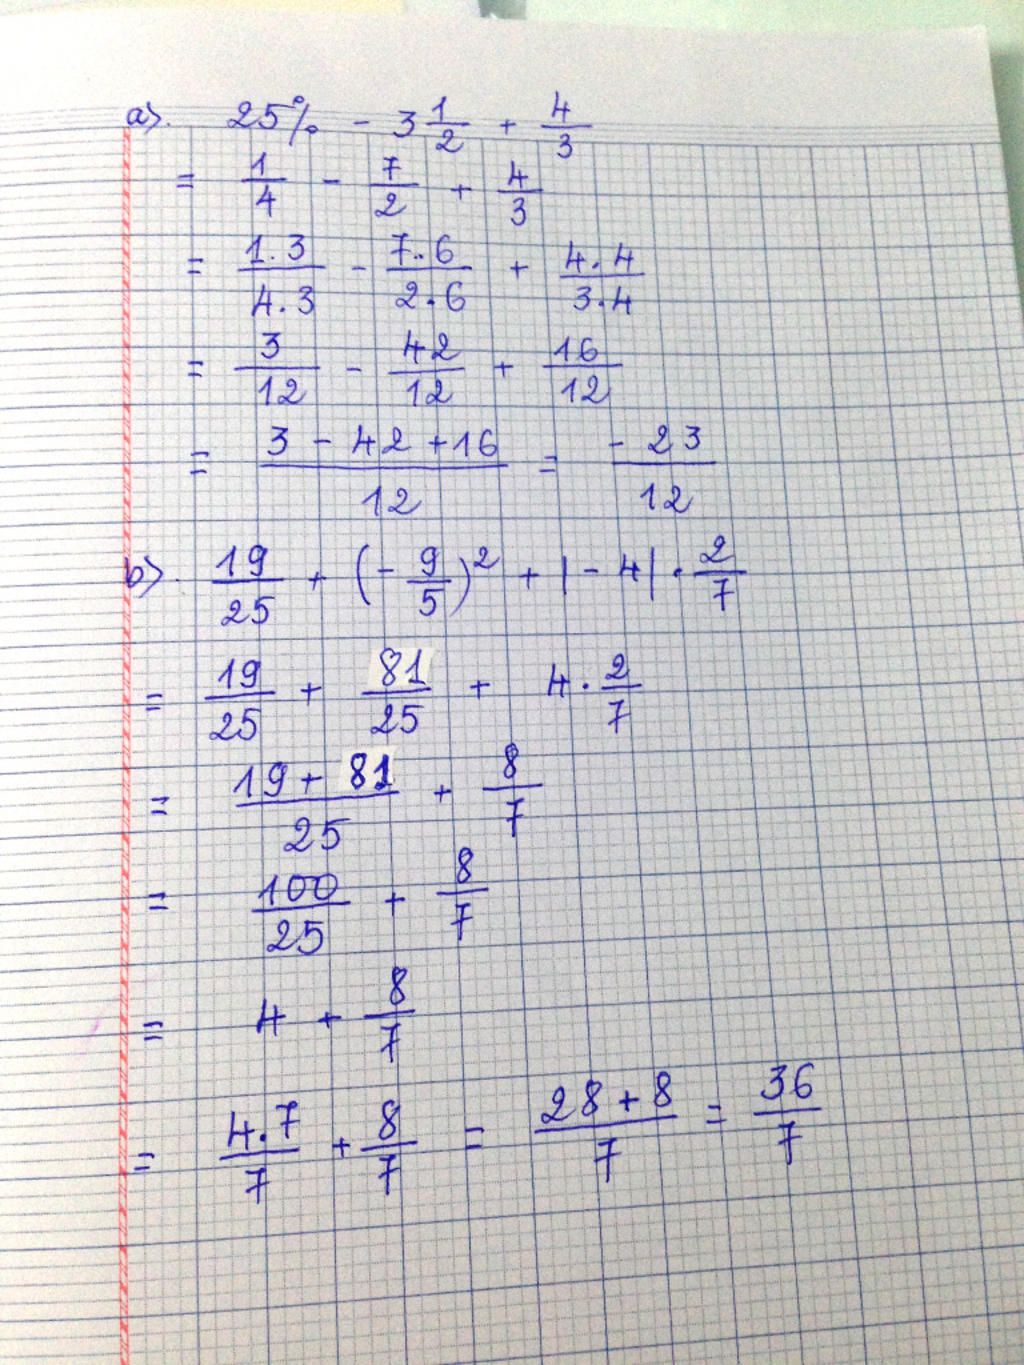 a). 25% - 3 1/2 + 4/3
= 1/4 - 7/2 + 4/3
= 1.3/4.3 - 7.6/2.6 + 4.4/3.4
= 3/12 - 42/12 + 16/12
= 3 - 42 + 16/12 = -23/12
b). 19/25 + (-9/5)² + |-4| . 2/7
= 19/25 + 81/25 + 4 . 2/7
= 19 + 81/25 + 8/7
= 100/25 + 8/7
= 4 + 8/7
= 4.7/7 + 8/7 = 28 + 8/7 = 36/7